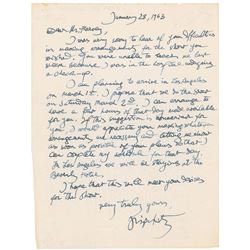 January 28, 1963
Dear Mr. Harvey,
I was very sorry to hear of your difficulties
in making arrangements for the show you
wished. You were unable to reach me here
because I was in the hospital undergoing
a check-up.
I am planning to arrive in Los Angeles
on March 1st. I propose that we do the show
on Saturday March 2nd. I can arrange to
have a few hours of that day made available
for you. If this suggestion is convenient for
you, I would appreciate your making whatever
arrangements are necessary and letting me know
as soon as possible of your plans so that I
can complete my schedule for that day.
In Los Angeles we will be staying at the
Beverly Hotel.
I hope that this will meet your desires
for the show.
Very truly yours,
J. Lipchitz